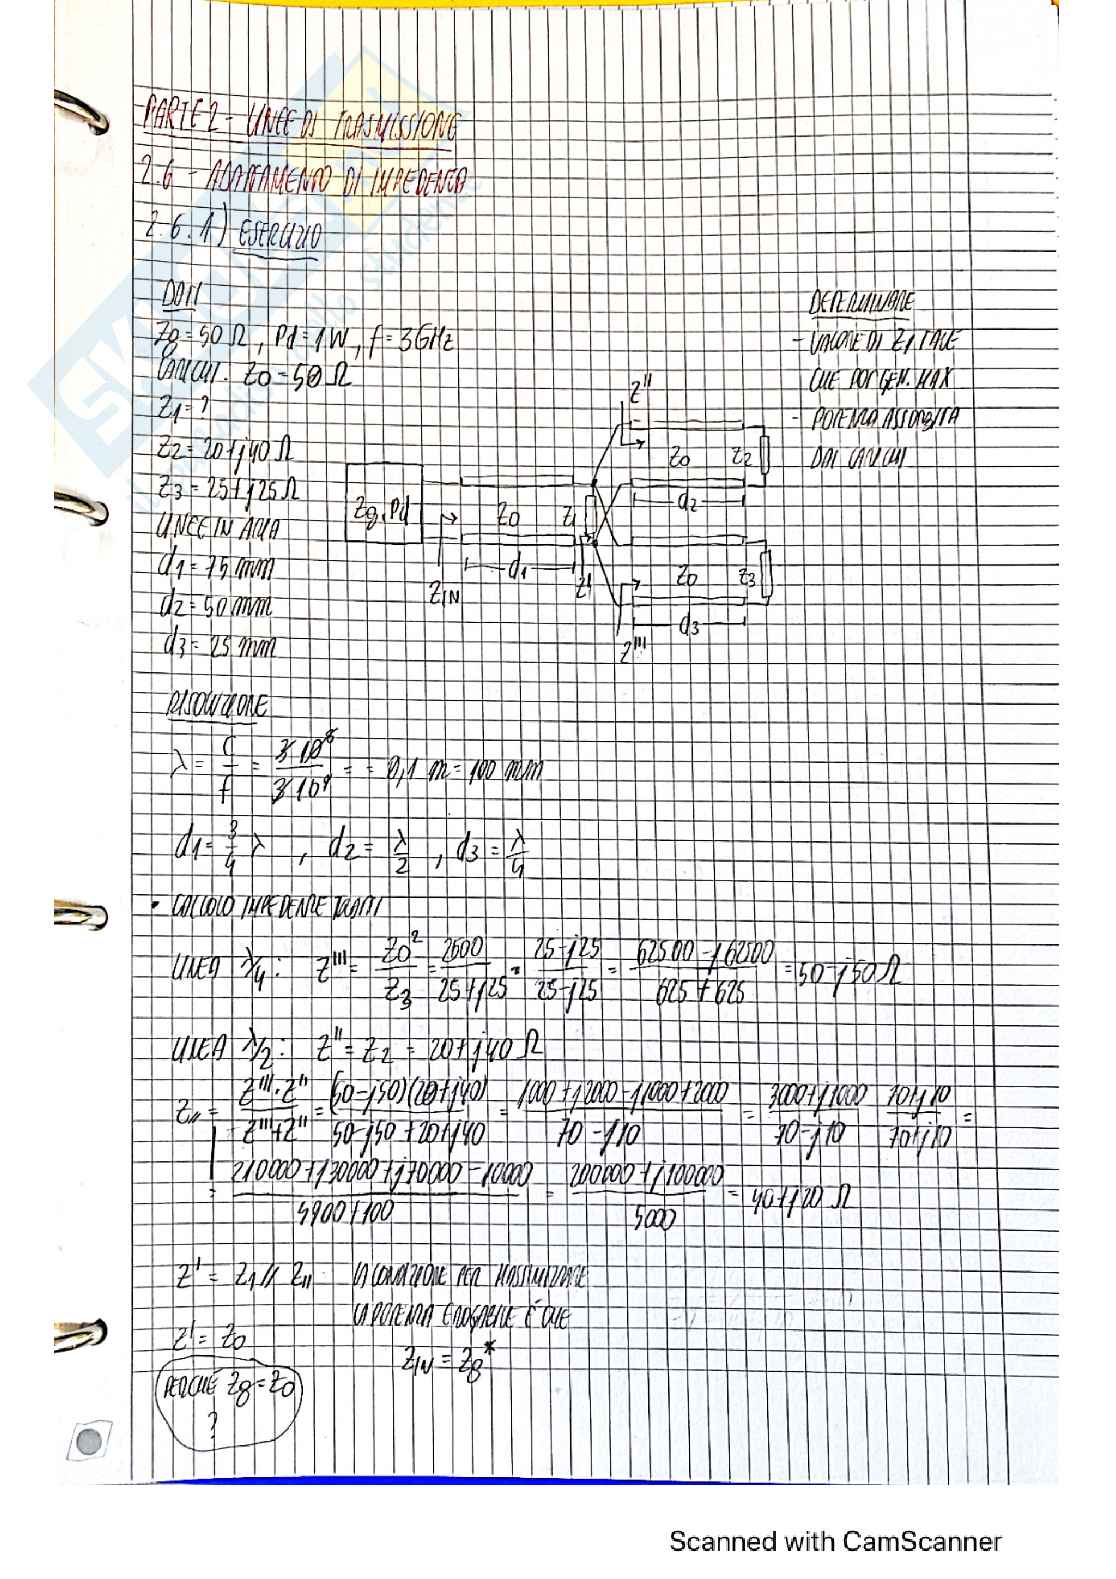 PARTE 2 - LINEE DI TRASMISSIONE
2.6 - ADATTAMENTO DI IMPEDENZA
2.6.1) ESERCIZIO
DATI
Zg = 50 Ω, Pd = 1W, f = 3GHz
CARICHI. Z0 = 50 Ω
Z1 = ?
Z2 = 20+j40 Ω
Z3 = 25+j25 Ω
LINEE IN ARIA
d1 = 75 mm
d2 = 50 mm
d3 = 25 mm
DETERMINARE
- VALORE DI Z1 TALE
CHE POT GEN. MAX
- POTENZA ASSORBITA
DAI CARICHI
Z''
Z0 Z2
d2
Zg, Pd
Z0 Z1
d1
ZIN
Z'
Z0 Z3
d3
Z'''
RISOLUZIONE
λ = c/f = 3·10⁸/3·10⁹ = = 0,1 m = 100 mm
d1 = 3/4 λ , d2 = λ/2 , d3 = λ/4
• CALCOLO IMPEDENZE
LINEA λ/4 : Z''' = Z0²/Z3 = 2500/25+j25 · 25-j25/25-j25 = 62500-j62500/625+625 = 50-j50 Ω
LINEA λ/2 : Z'' = Z2 = 20+j40 Ω
Z// = Z'''·Z''/Z'''+Z'' = (50-j50)(20+j40)/50-j50+20+j40 = 1000+j2000-j1000+2000/70-j10 = 3000+j1000/70-j10 70+j10/70+j10 =
= 210000+j30000+j70000-10000/4900+100 = 200000+j100000/5000 = 40+j20 Ω
Z' = Z1 // Z// LA CONDIZIONE PER MASSIMIZZARE
LA POTENZA EROGABILE È CHE
Z' = Z0
ZIN = Zg*
PERCHÉ Zg = Z0
?
Scanned with CamScanner